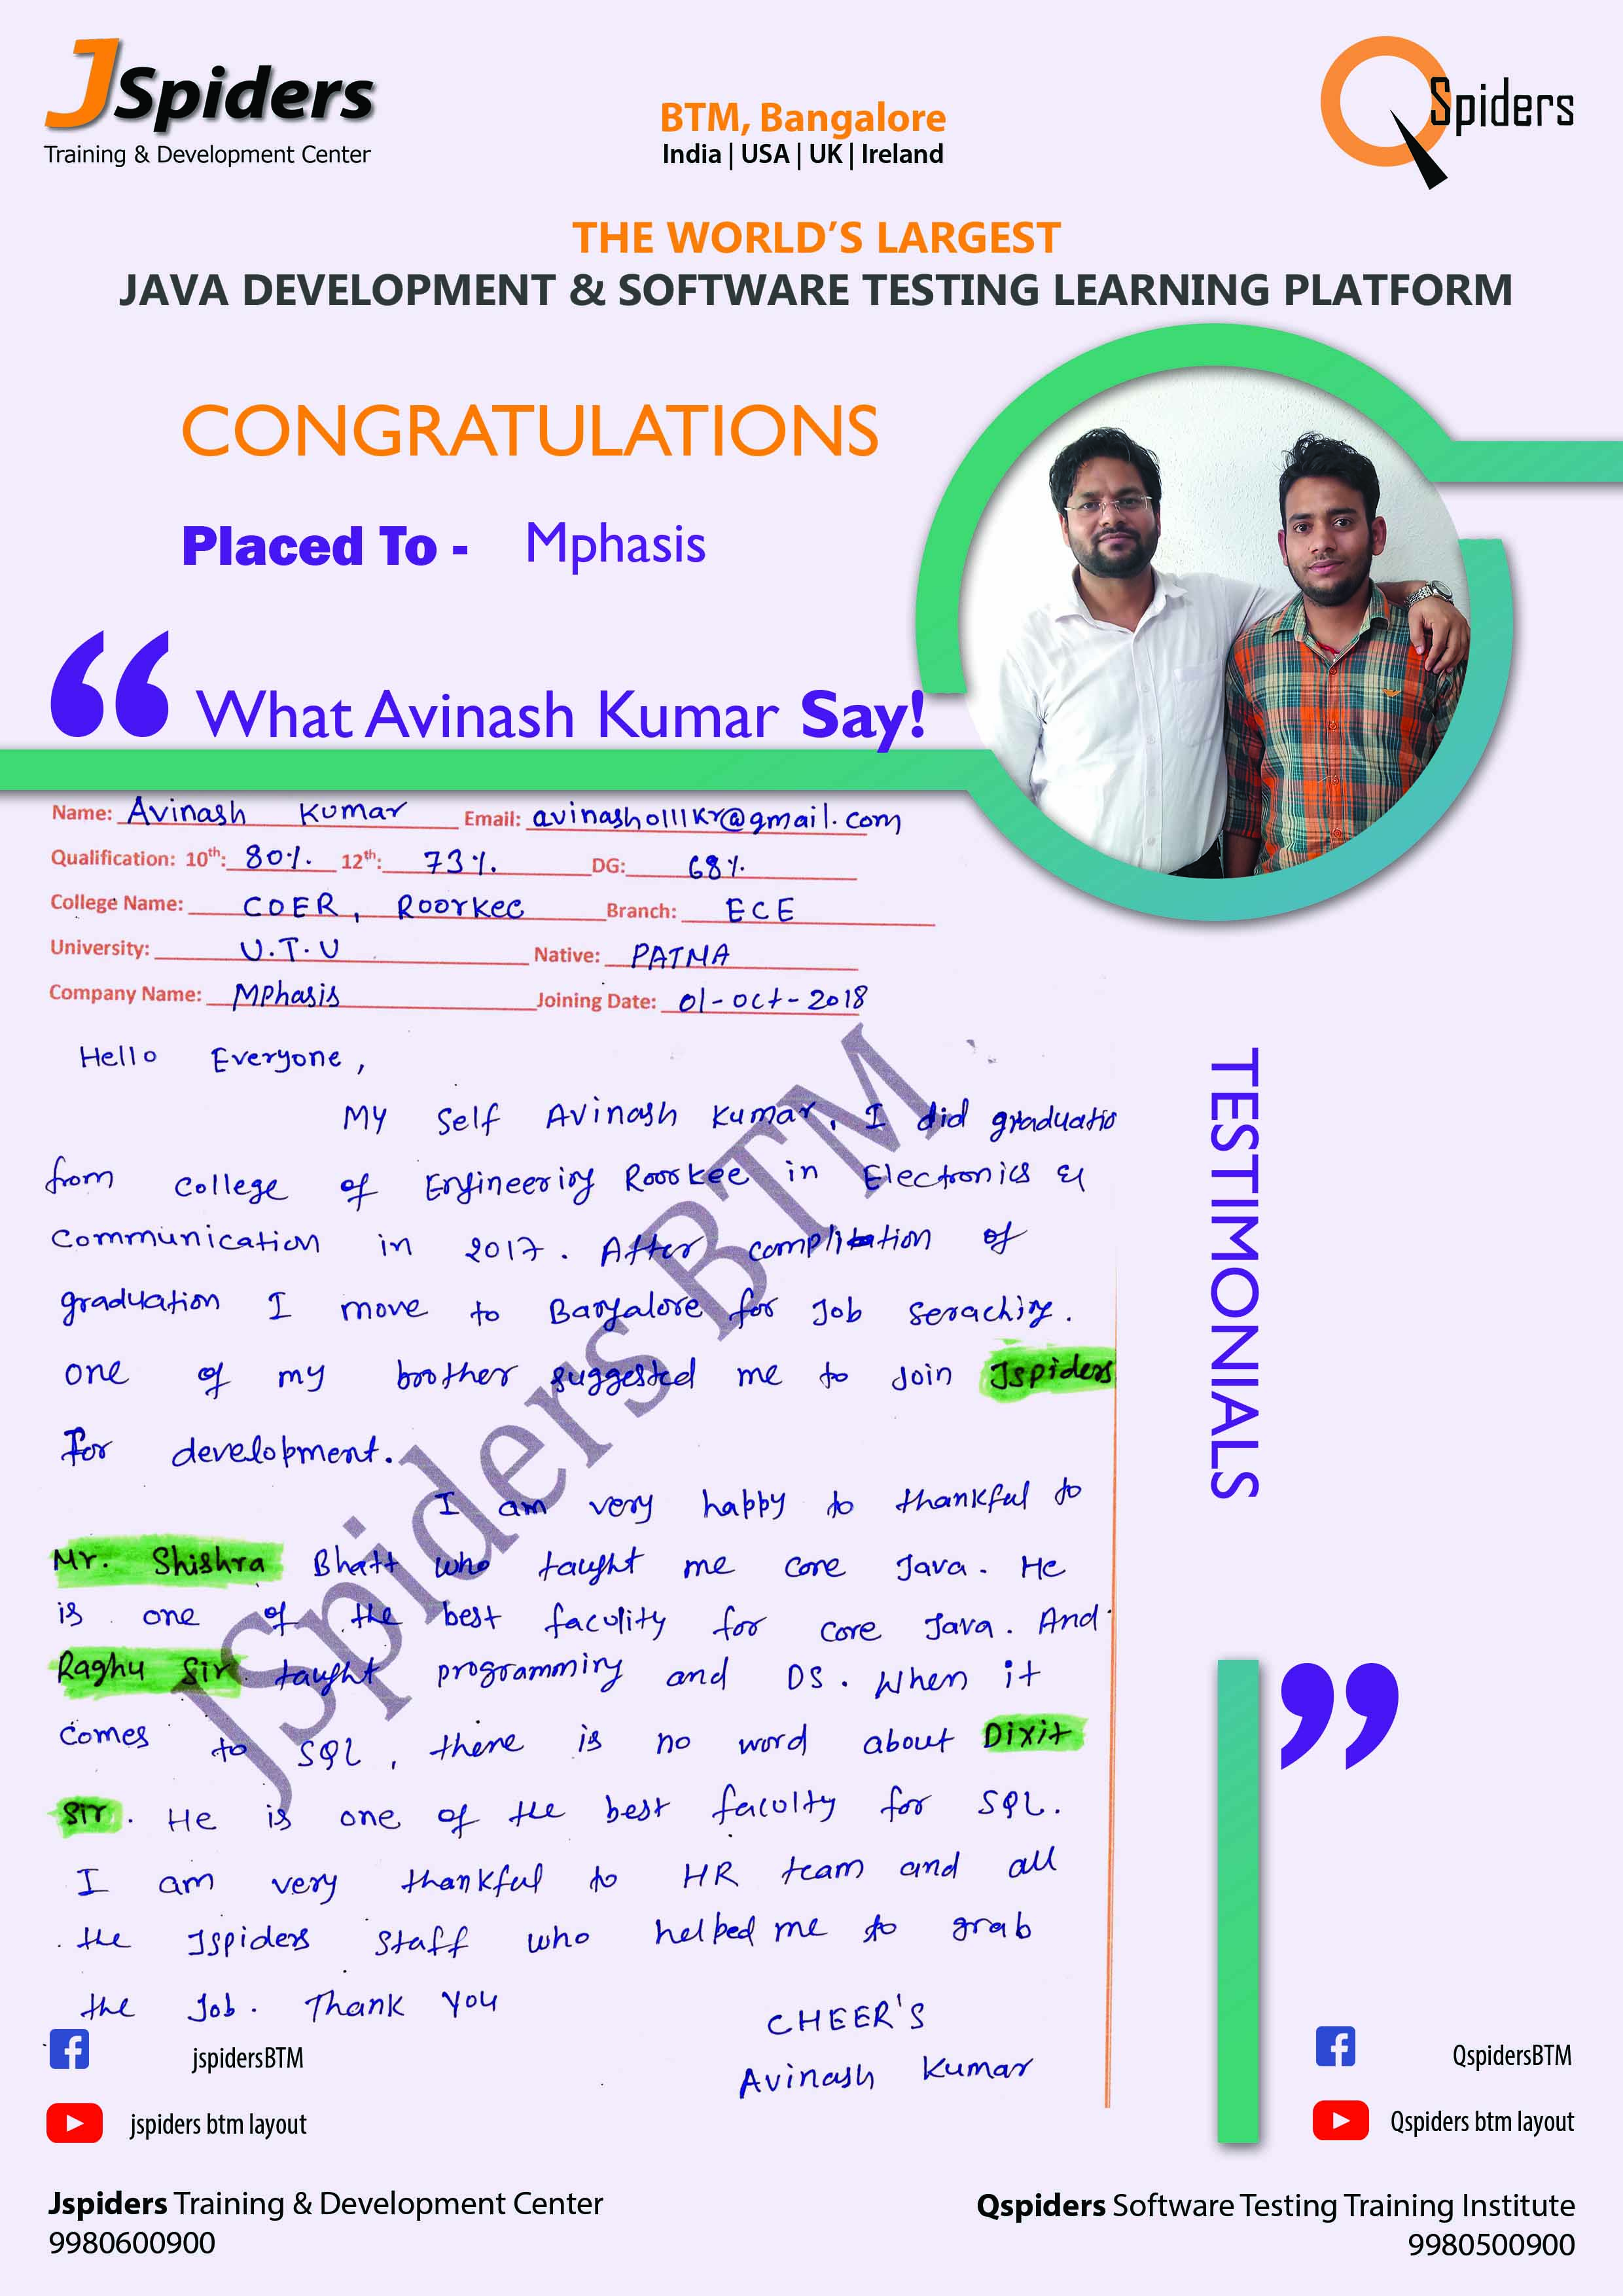 JSpiders
Training & Development Center
BTM, Bangalore
India | USA | UK | Ireland
QSpiders
THE WORLD'S LARGEST
JAVA DEVELOPMENT & SOFTWARE TESTING LEARNING PLATFORM
CONGRATULATIONS
Placed To - Mphasis
“ What Avinash Kumar Say!
Name: Avinash Kumar Email: avinash0111kr@gmail.com
Qualification: 10th: 80% 12th: 73% DG: 68%
College Name: COER, Roorkee Branch: ECE
University: U.T.U Native: PATNA
Company Name: MPhasis Joining Date: 01-Oct-2018
Hello Everyone,
My Self Avinash Kumar, I did graduatio
from College of Engineering Roorkee in Electronics &
Communication in 2017. After complitation of
graduation I move to Bangalore for Job seraching.
one of my brother suggested me to Join Jspiders
For development.
I am very happy to thankful to
Mr. Shishra Bhatt who taught me core Java. He
is one of the best faculity for core Java. And
Raghu Sir taught programming and DS. When it
comes to SQL, there is no word about Dixit
Sir. He is one of the best faculty for SQL.
I am very thankful to HR team and all
the Jspiders Staff who helped me to grab
the Job. Thank You
CHEER'S
Avinash Kumar
JSpiders BTM
TESTIMONIALS
”
jspidersBTM
jspiders btm layout
QspidersBTM
Qspiders btm layout
Jspiders Training & Development Center
9980600900
Qspiders Software Testing Training Institute
9980500900